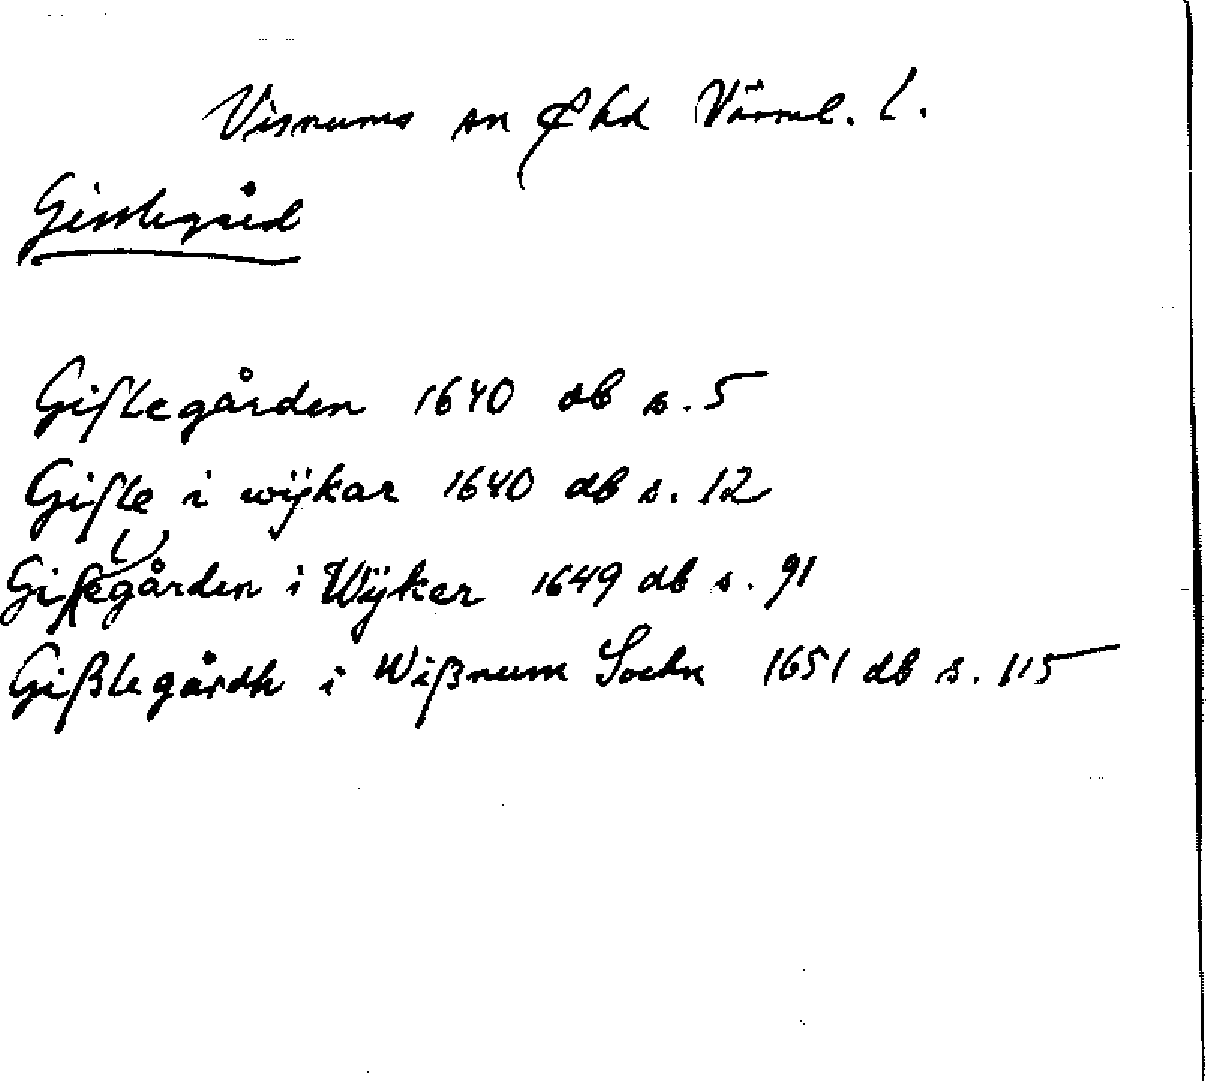 Visnums sn & hd Värml. l.
Gisslegård
Giſlegården 1640 db s. 5
Giſle i wijkar 1640 db s. 12
Giſlegården i Wÿker 1649 db s. 91
Gißlegårdh i Wißnum Sochn 1651 db s. 115